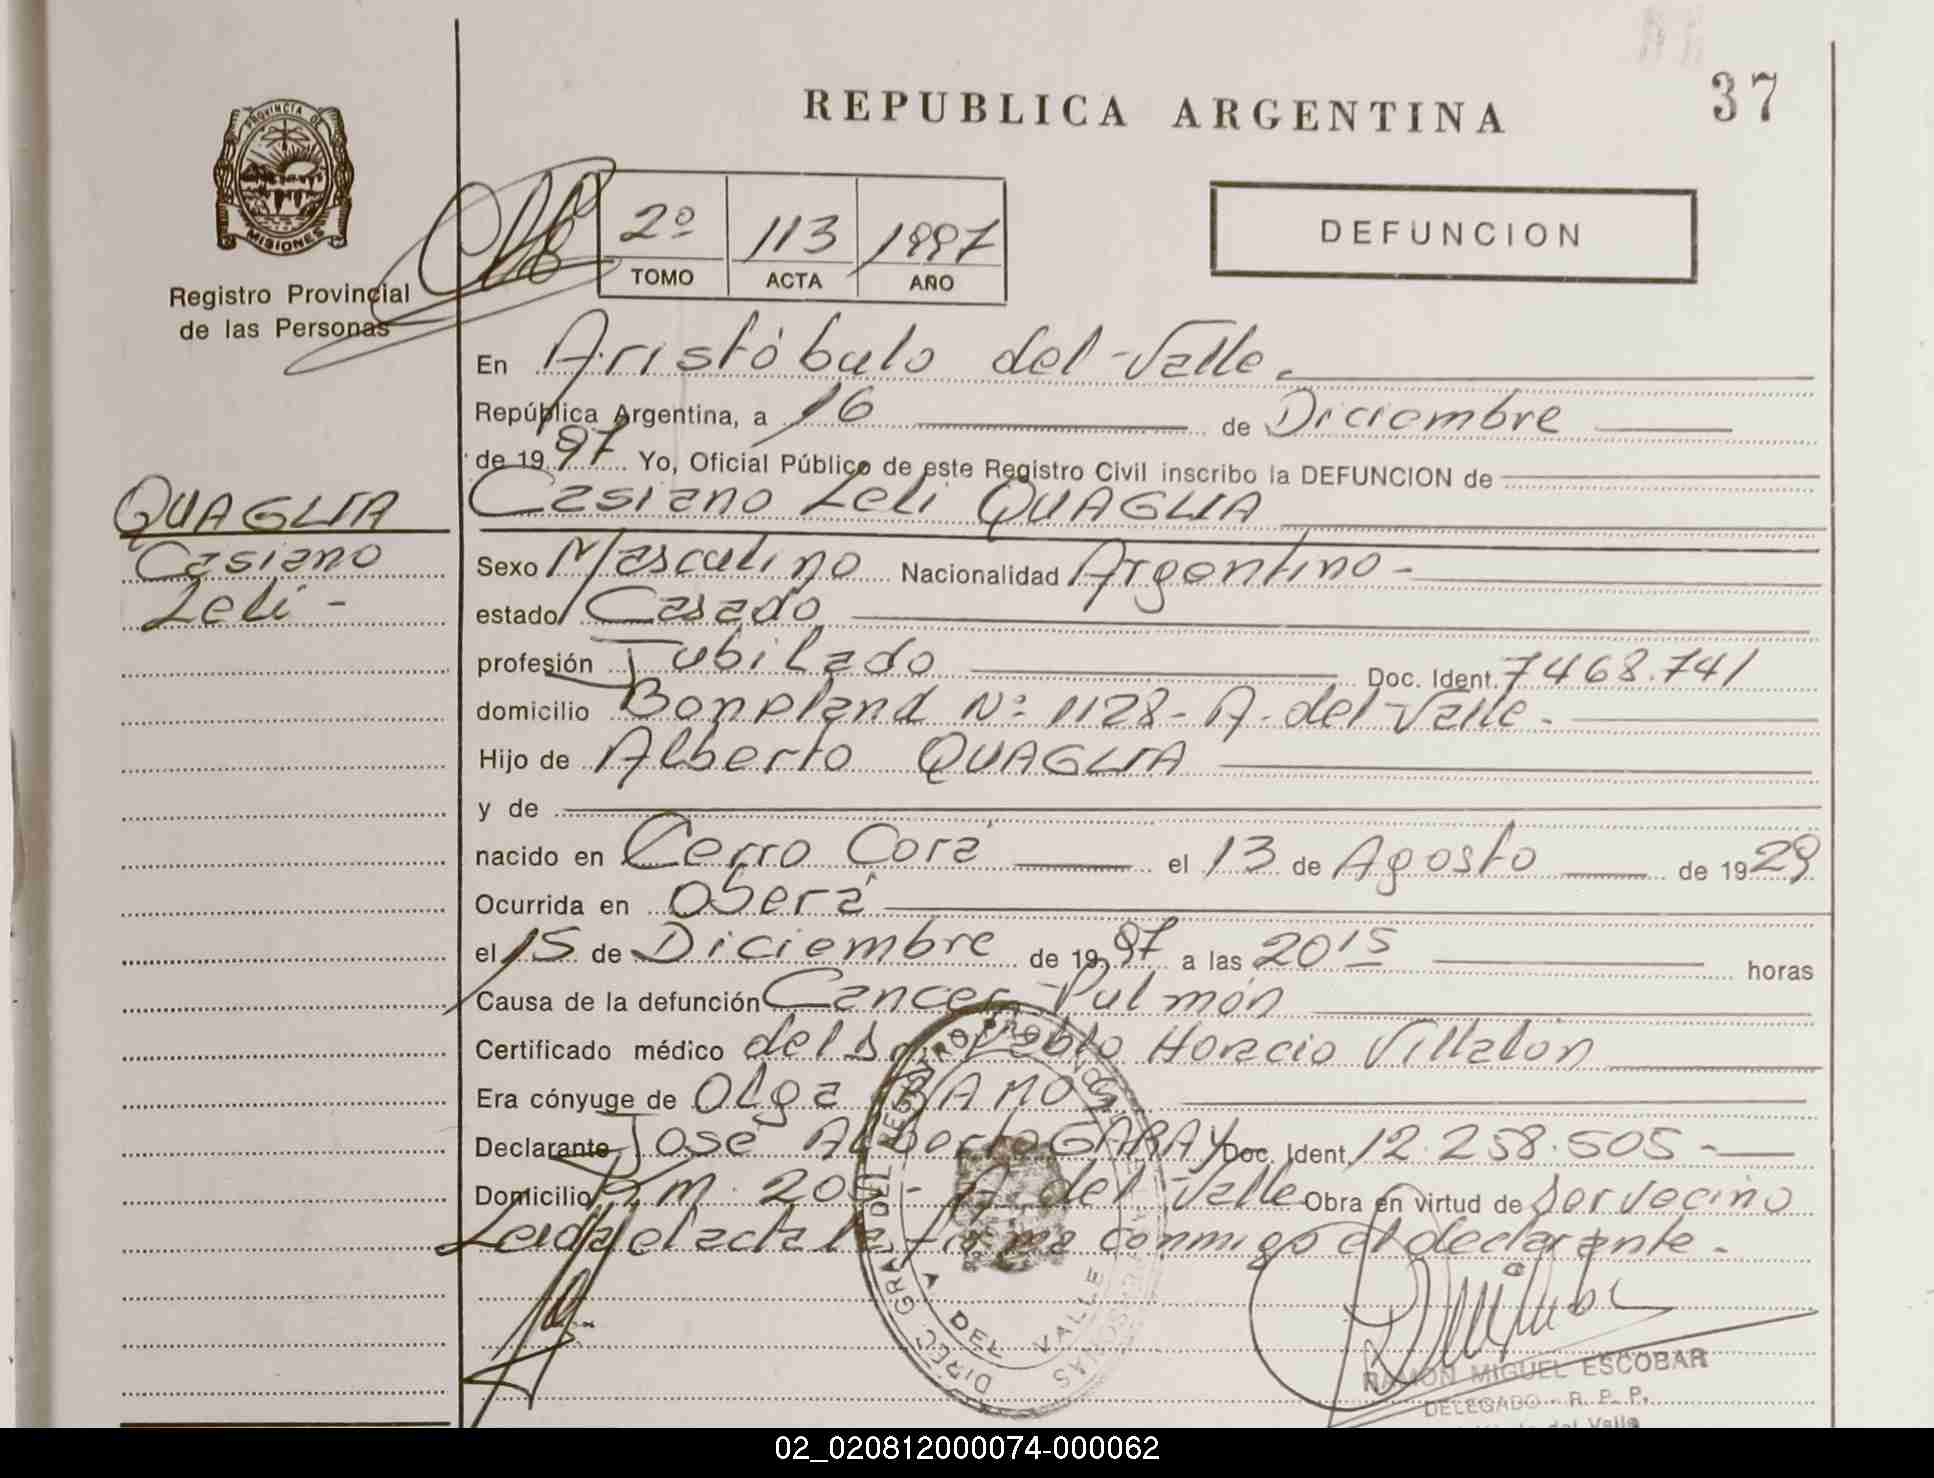 37
REPUBLICA ARGENTINA
PROVINCIA DE
MISIONES
Registro Provincial
de las Personas
2º 113 1997
TOMO ACTA AÑO
DEFUNCION
En Aristóbulo del Valle.
República Argentina, a 16 de Diciembre
de 19 97 Yo, Oficial Público de este Registro Civil inscribo la DEFUNCION de
QUAGLIA
Casiano
Leli -
Casiano Leli QUAGLIA
Sexo Masculino Nacionalidad Argentino -
estado Casado
profesión Jubilado Doc. Ident. 7468.741
domicilio Bonpland Nº 1128 - A. del Valle -
Hijo de Alberto QUAGLIA
y de
nacido en Cerro Corá el 13 de Agosto de 19 29
Ocurrida en Oberá
el 15 de Diciembre de 19 97 a las 20 15 horas
Causa de la defunción Cancer Pulmón
Certificado médico del Dr Pablo Horacio Villalón
Era cónyuge de Olga RAMOS
Declarante José Alberto GARAY Doc. Ident. 12.258.505 -
Domicilio Km. 205 - A. del Valle Obra en virtud de ser vecino
Leida el acta la firma conmigo el declarante -
DIREC. GRAL. DEL REGISTRO PROVINCIAL PERSONAS
A DEL VALLE
RAMON MIGUEL ESCOBAR
DELEGADO - R. P. P.
del Valle
02_020812000074-000062